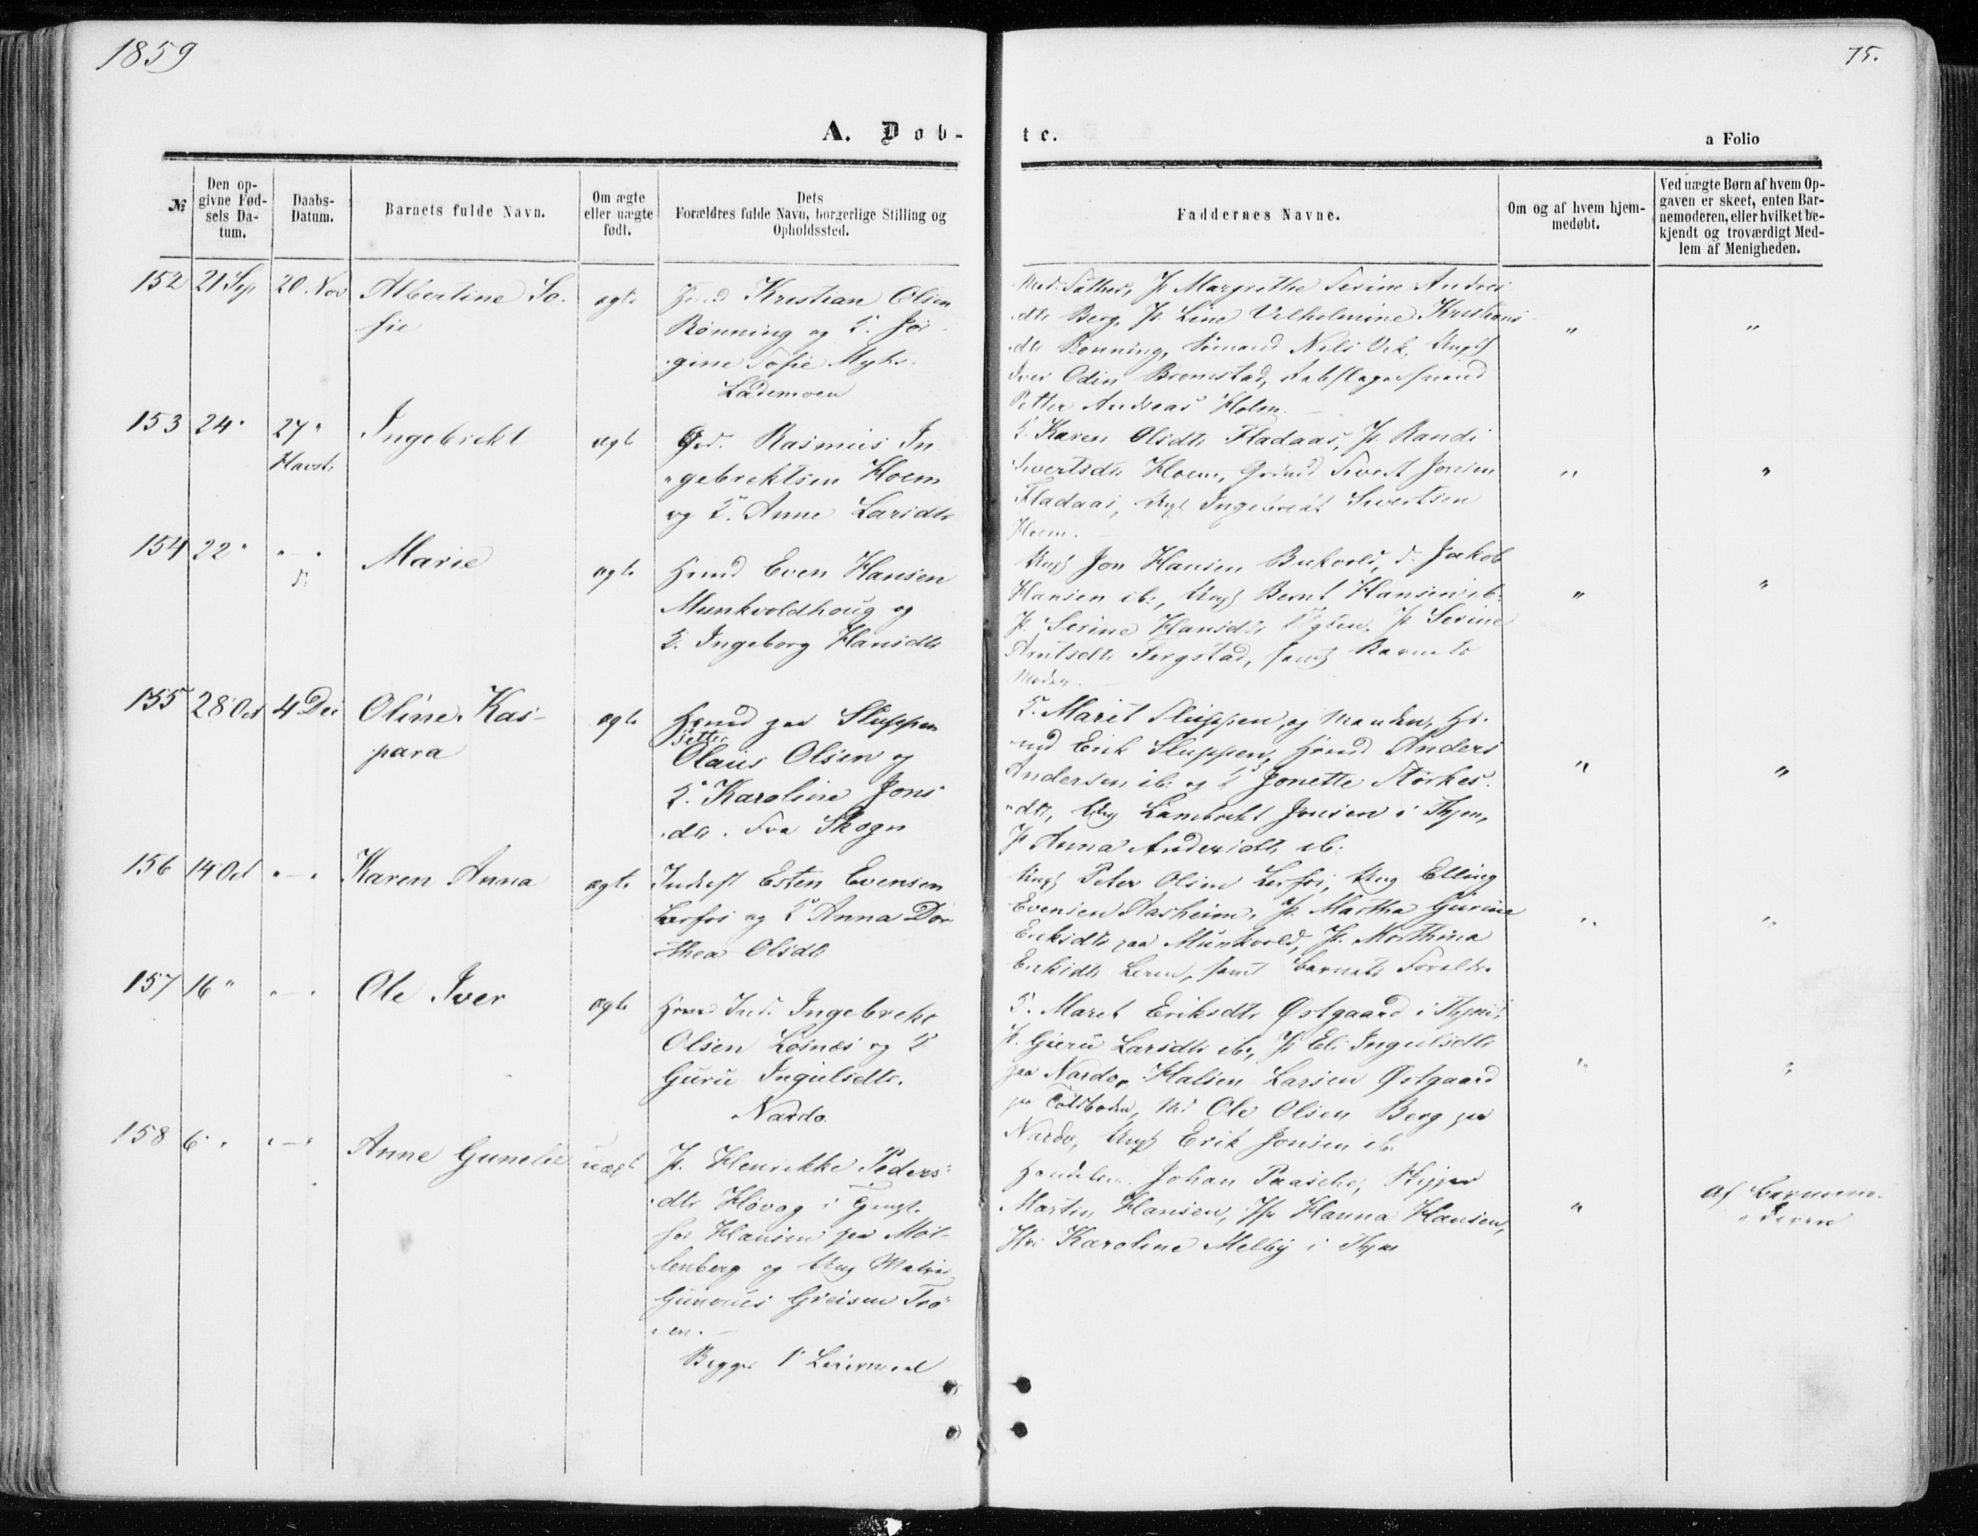 1859
75.
A. Døb-
te.
a Folio
№
Den op-
givne Fød-
sels Da-
tum.
Daabs-
Datum.
Barnets fulde Navn.
Om ægte
eller uægte
født.
Dets
Forældres fulde Navn, borgerlige Stilling og
Opholdssted.
Faddernes Navne.
Om og af hvem hjem-
medøbt.
Ved uægte Børn af hvem Op-
gaven er skeet, enten Bar-
nemoderen, eller hvilket be-
kjendt og troværdigt Med-
lem af Menigheden.
152 21 Sep 20 Nov Albertine So-
fie
ægte
Kristian Olsen
Rønning og K. Jør-
gine Sofie Myhr.
Lademoen
P. Margrethe Serine Anders-
dtr Berg, P. Line Vilhelmine Kristians-
dtr Rønning, Nils Vik, Ungk
Iver Odin Bromstad,
Petter Andreas Holm.
" "
153 24 " 27 "
Havst.
Ingebrekt
ægte
Rasmus In-
gebrektsen Hoem
og K. Anne Larsdtr
K. Karen Olsdtr Fladaas, P. Randi
Sivertsdtr Hoem, Sivert Jonsen
Fladaas, Ungk Ingebrekt Sivertsen
Hoem.
" "
154 22 " " — "
Marie
ægte
Hmd Even Hansen
Munkvoldhoug og
K. Ingeborg Hansdtr
Ungk Jon Hansen, Jakob
Hansen ib., Ungk Bernt Hansen ib.
P. Serine Hansdtr P. Serine
samt Barnets
Moder.
" "
155 28 Oct 4 Dec Oline Kas-
para
ægte
Hmd paa Sluppen
Petter
Olaus Olsen og
K. Karoline Jons-
dtr. Fra Skogn
K. Marit Sluppen, og Manden, Hs-
md Erik Sluppen, Hmd Anders
Andersen ib. og K. Jonette Størkers-
dtr, Ung Lambrekt Jonsen i Thjem,
P. Anna Andersdtr ib.
" "
156 14 Oct " — " Karen Anna
ægte
Esten Evensen
Lerfos og K. Anna Dor-
thea Olsdtr
Ungk Peter Olsen Lerfos, Ung Elling
Evensen Aasheim, P. Martha Gurine
Eriksdtr paa Munkvold, P. Marthina
Eriksdtr Leren, samt Barnets Foreldre
" "
157 16 " " — " Ole Iver
ægte
Hmd Ind. Ingebrekt
Olsen og K
Guru Ingulsdtr.
Nardo.
K. Maret Eriksdtr Østgaard i
P. Guru Larsdtr ib., P. Eli Ingulsdtr
paa Nardo, Halsen Larsen Østgaard
paa Toldboden, Ole Olsen Berg paa
Nardo, Ungk Erik Jonsen ib.
" "
158 6 " " — " Anne Gunelie
uægt
P. Henrikke Peders-
dtr Høvag i
hos Hansen paa Møl-
lenberg og Ung Matros
Trø-
en.
Begges 1' Leiermaal
Johan Paasche, Skipper
Martin Hansen, Hanna Hansen,
Karoline Melby i
"
Af Barnemo-
deren